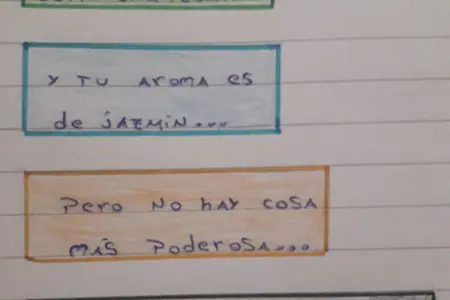 y TU AromA es
de jAZMiN...
Pero No hAY cosA
MAS PoderosA...